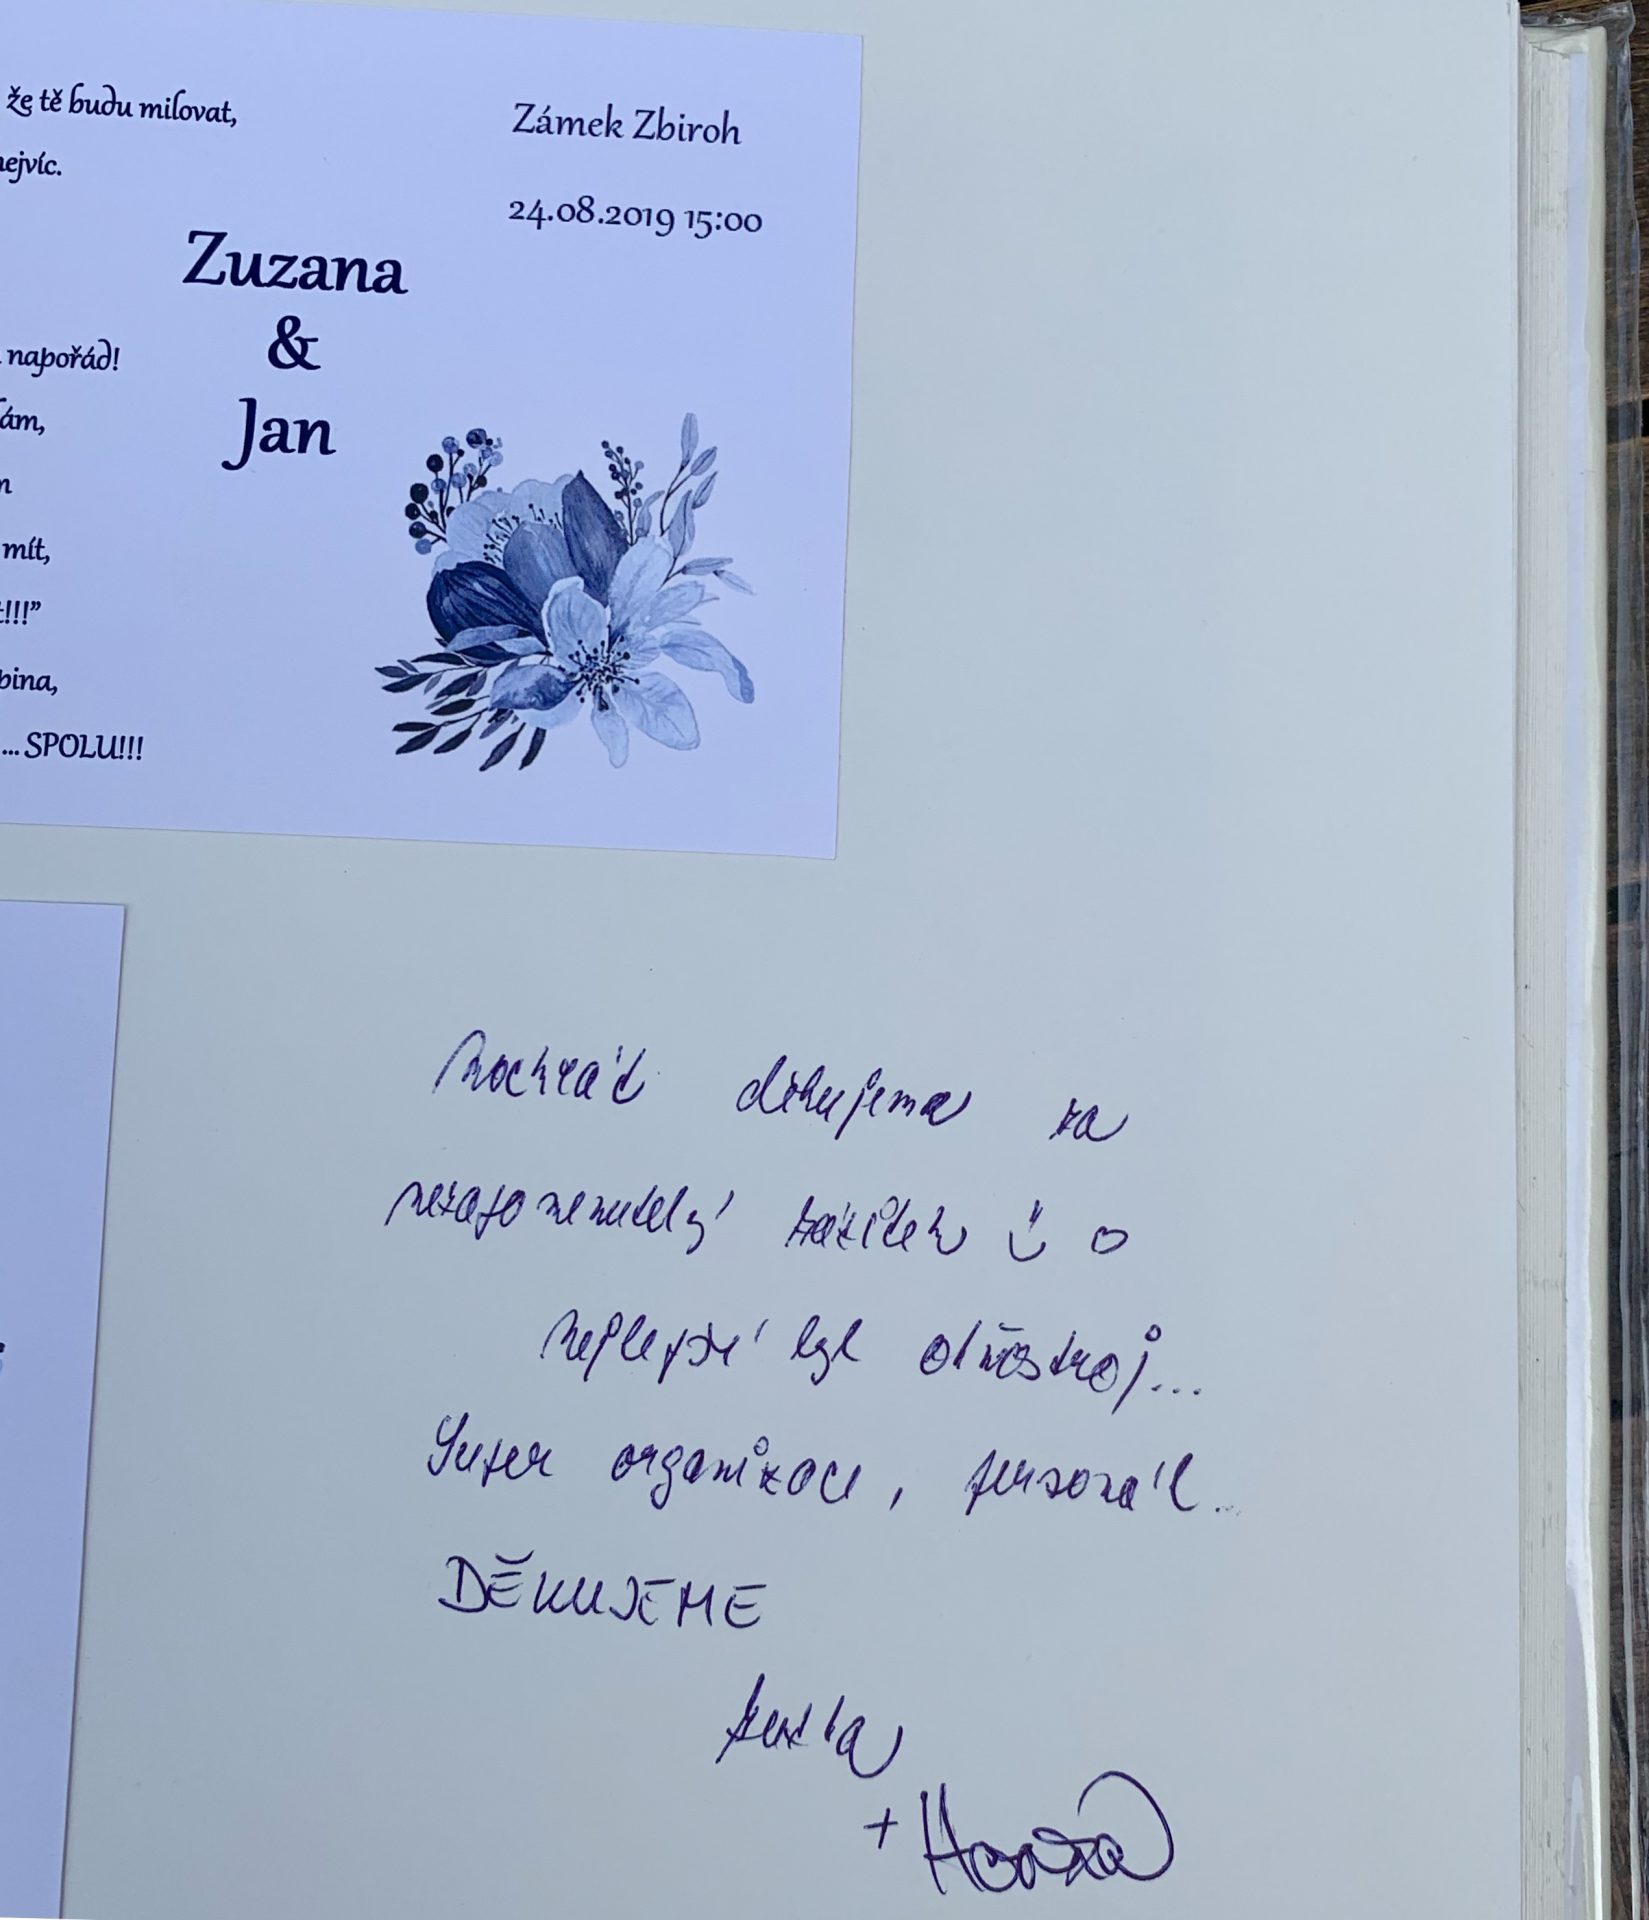 že tě budu milovat,
nejvíc.
Zámek Zbiroh
24.08.2019 15:00
Zuzana
&
Jan
napořád!
mít,
!!!”
... SPOLU!!!
Mockrát děkujeme za
nezapomenutelný zážitek
nejlepší byl ohňostroj...
Super organizace, personál...
DĚKUJEME
Zuzka
+ Honza